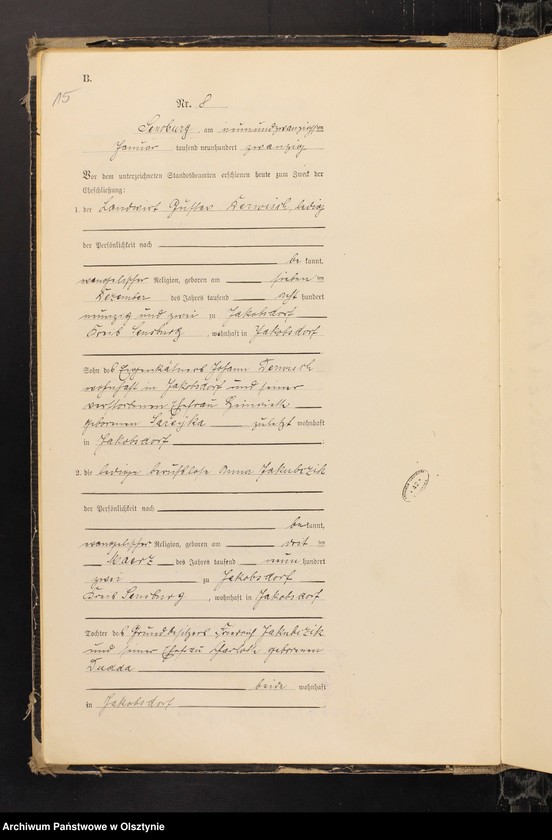 B.
15
Nr. 8
Sensburg, am neunundzwanzigsten
Januar tausend neunhundert zwanzig
Vor dem unterzeichneten Standesbeamten erschienen heute zum Zweck der
Eheschließung:
1. der Landwirt Gustav ledig
der Persönlichkeit nach
be kannt,
evangelischer Religion, geboren am sieben ten
Dezember des Jahres tausend acht hundert
neunzig und zwei zu Jakobsdorf
Kreis Sensburg, wohnhaft in Jakobsdorf
Sohn des Eigenkätners Johann
wohnhaft in Jakobsdorf und seiner
verstorbenen Ehefrau
geborenen zuletzt wohnhaft
in Jakobsdorf
2. die ledige berufslose Anna Jakubczik
der Persönlichkeit nach
be kannt,
evangelischer Religion, geboren am ten
Maerz des Jahres tausend neun hundert
zwei zu Jakobsdorf
Kreis Sensburg, wohnhaft in Jakobsdorf
Tochter des Grundbesitzers Friedrich Jakubczik
und seiner Ehefrau geborenen
Dudda
beide wohnhaft
in Jakobsdorf
Archiwum Państwowe w Olsztynie